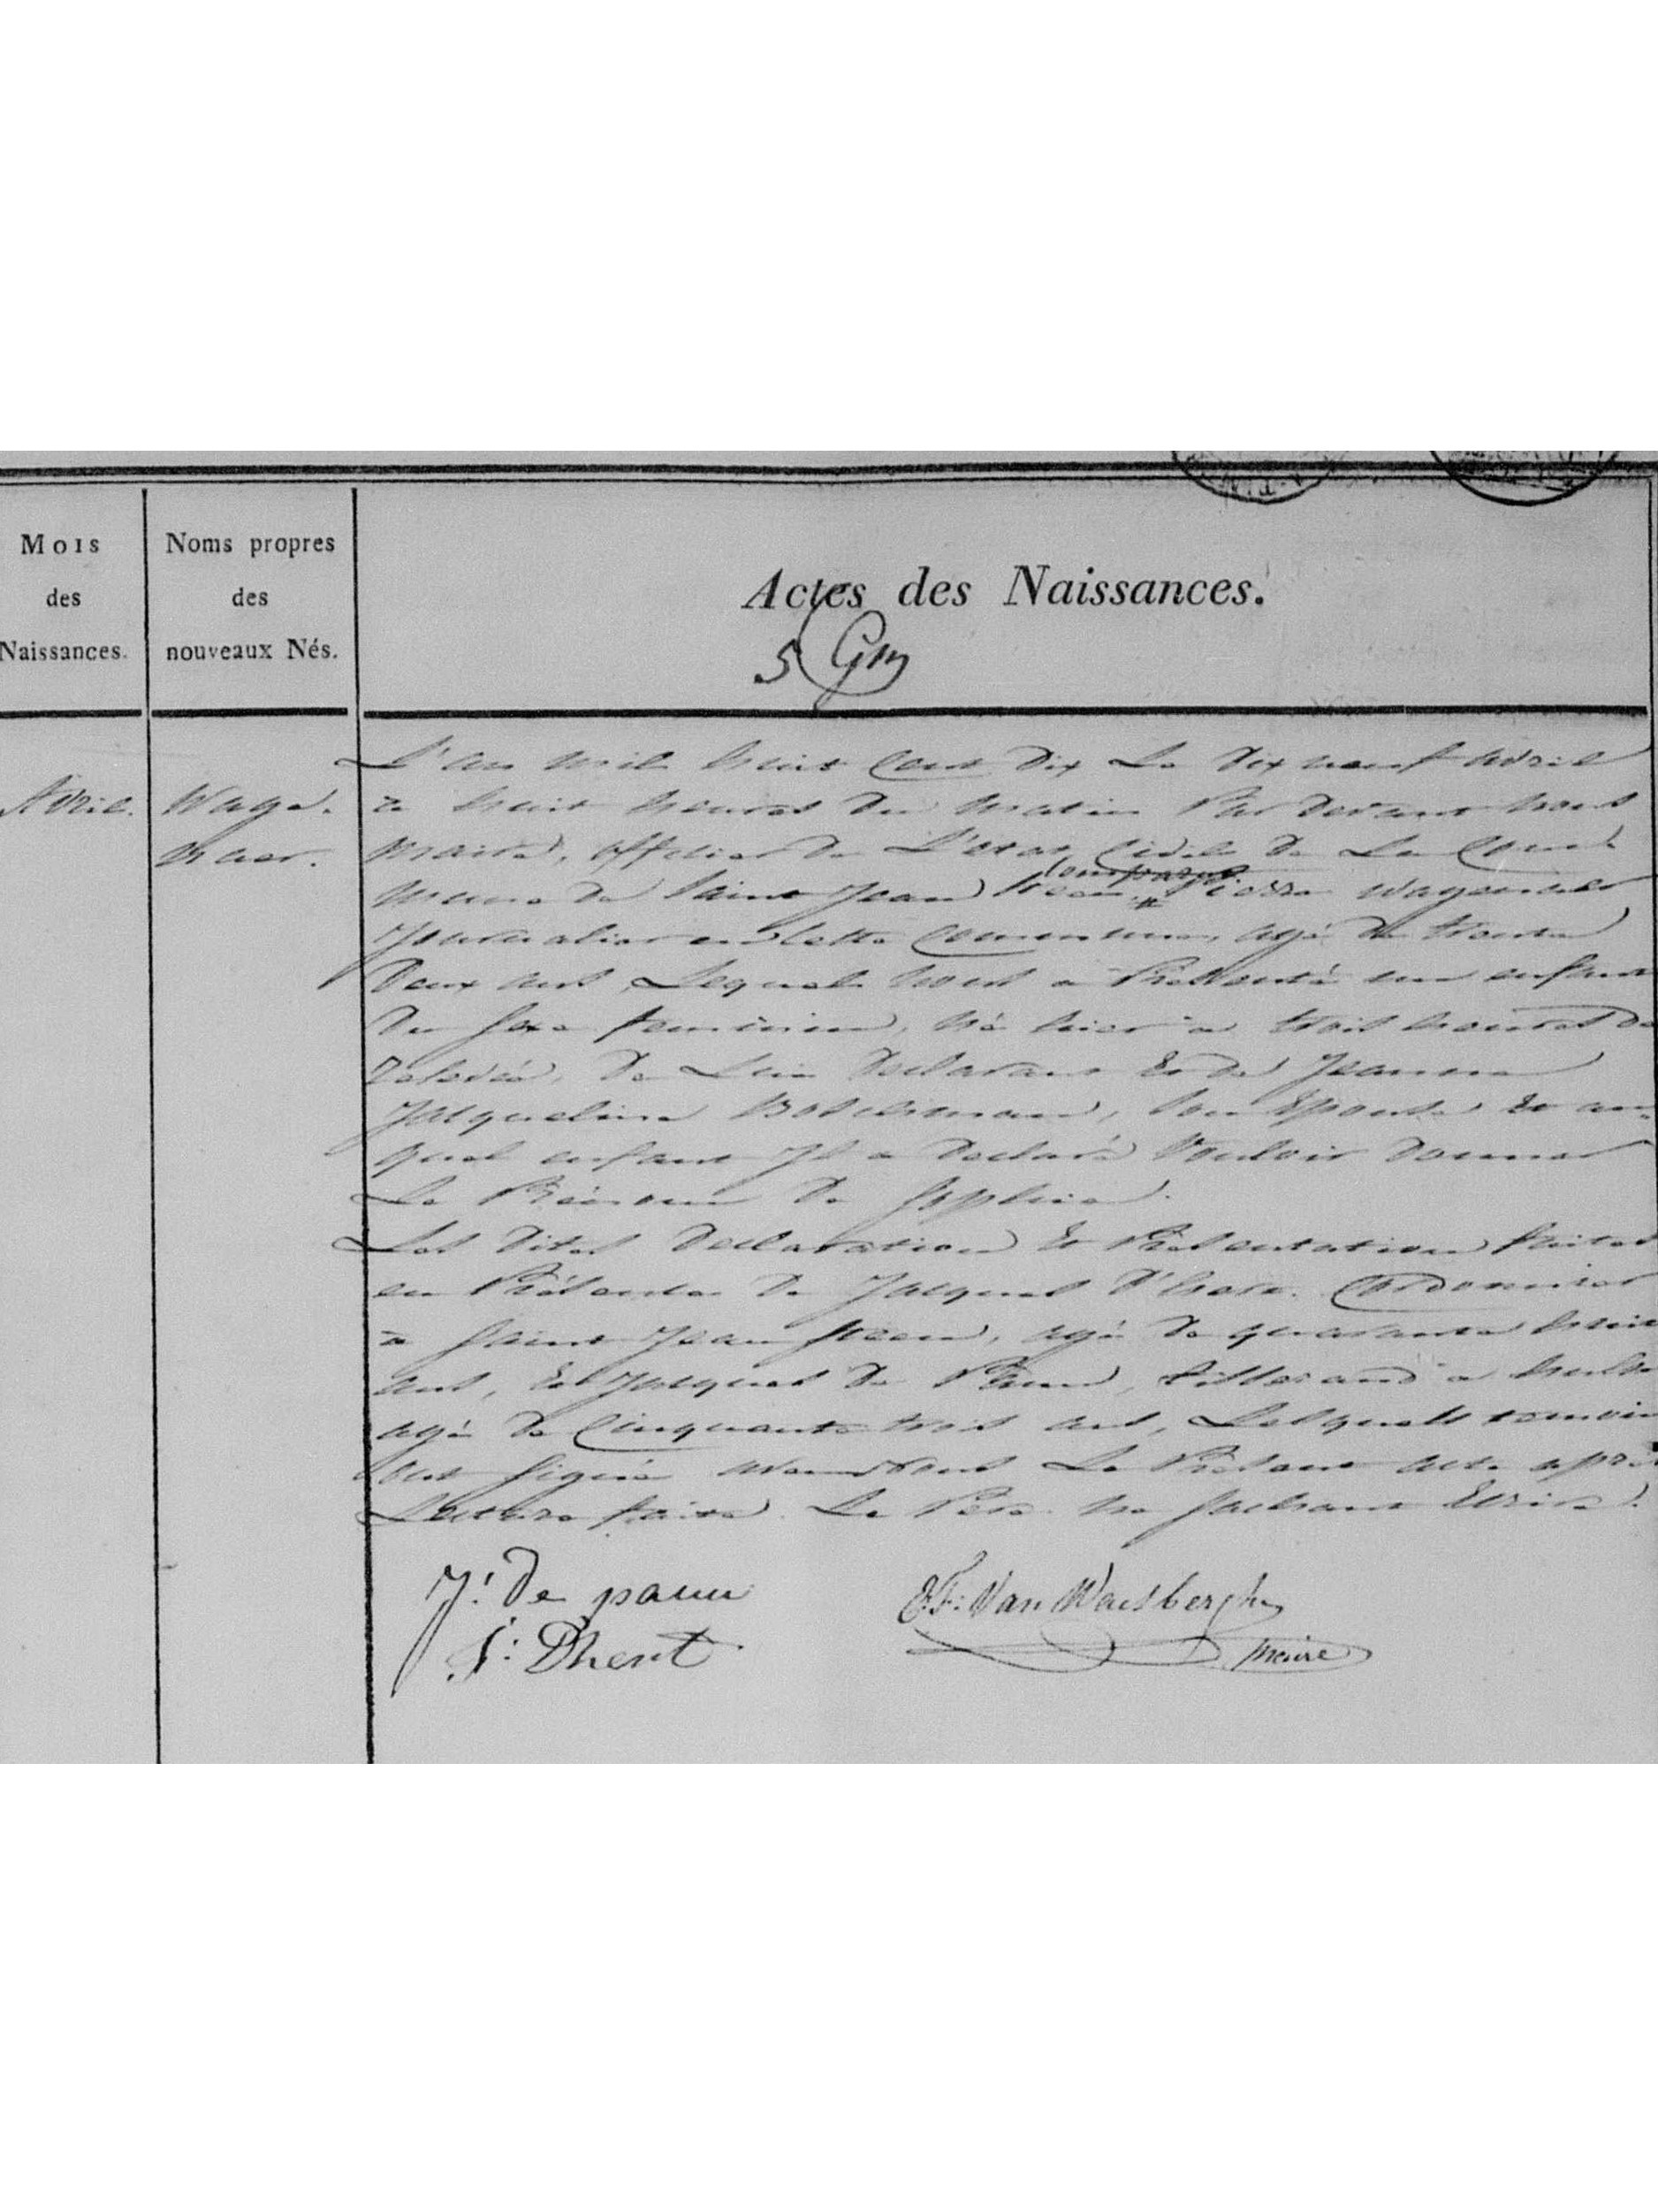 Mois
des
Naissances.
Noms propres
des
nouveaux Nés.
Actes des Naissances.
5
Avril.
Wage.
naer.
L'an mil huit Cent Dix Le Dix neuf avril
a huit heures du matin Par Devant nous
maire, officier De L'état Civile De La Com
mune De Saint Jean Steen, Comparut Pierre Wagenaer
Journalier en Cette Commune, agé De trente
Deux ans, Lequel nous a Présenté un enfant
Du sexe feminin, né hier a trois heures De
relevée, De Lui Declarant Et De Jeanne
Jacqueline, Son Epouse Et au
quel enfant Il a Declaré Vouloir Donner
Le Prénom De Sophie.
Les Dites Declaration Et Présentation faites
en Présence De Jacques D'hert. Cordonnier
a Saint Jean Steen, agé De quarante huit
ans, Et Jacques De Paun, tisserand a hulst
agé De Cinquante trois ans, Lesquels temoin
ont signé avec nous Le Présent acte après
Lecture faite. Le Père ne sachant Ecrire.
J: De paun
J: Dhert.
E. F: Van Waesberghe
maire